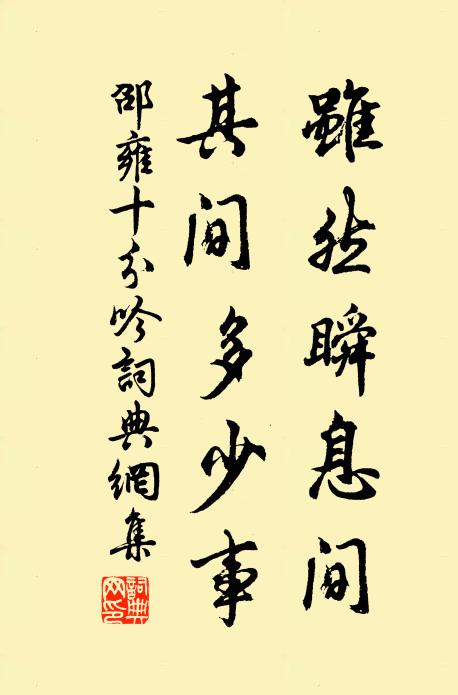 雖然瞬息间
其间多少事
邵雍十分吟詞典網集
詞典网印